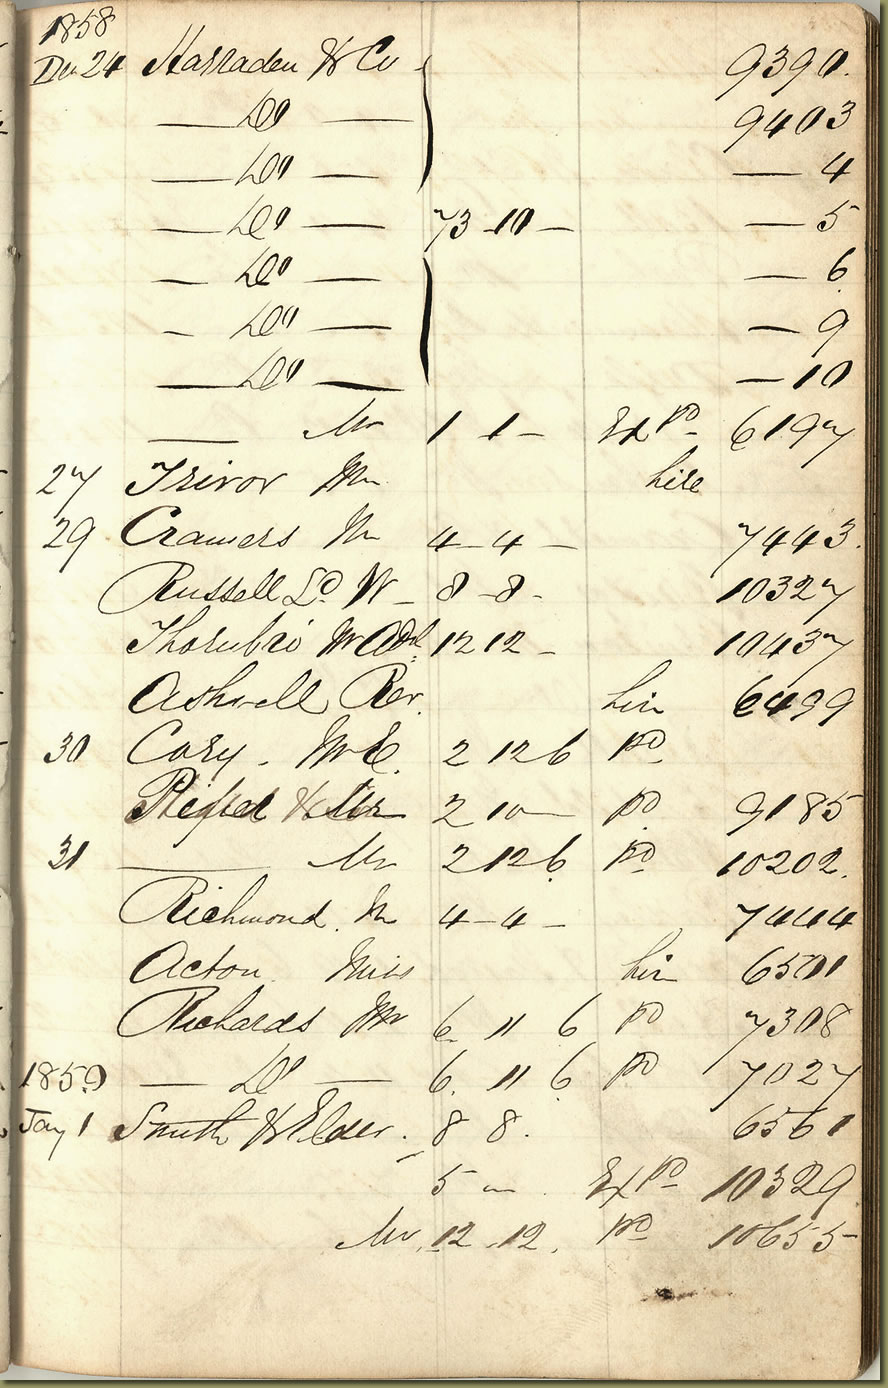 1858
Dec 24 Harraden & Co 9390.
— Do — 9403
— Do — — 4
— Do — 73 - 10 - — 5
— Do — — 6
— Do — — 9
— Do — — 10
— Mr 1 1 - Ex Pd 6197
27 Trivor Mr hire
29 Cramers Mr 4 - 4 - 7443.
Russell Ld W - 8 - 8 - 10327
Mr 12 12 - 10437
Ashwell Rev. hire 6499
30 Cory. Mr E. 2 12 6 Pd
& 2 10 — Pd 9185
31 — Mr 2 12 6 Pd 10202.
Richmond. Mr 4 - 4 - 7444
Acton Miss hire 6501
Richards Mr 6 11 6 Pd 7308
1859 — Do — 6. 11 6 Pd 7027
Jany 1 Smith & Elder. 8 8. 6561
5 - . Ex Pd 10329
Mr. 12 . 12 . Pd 10655